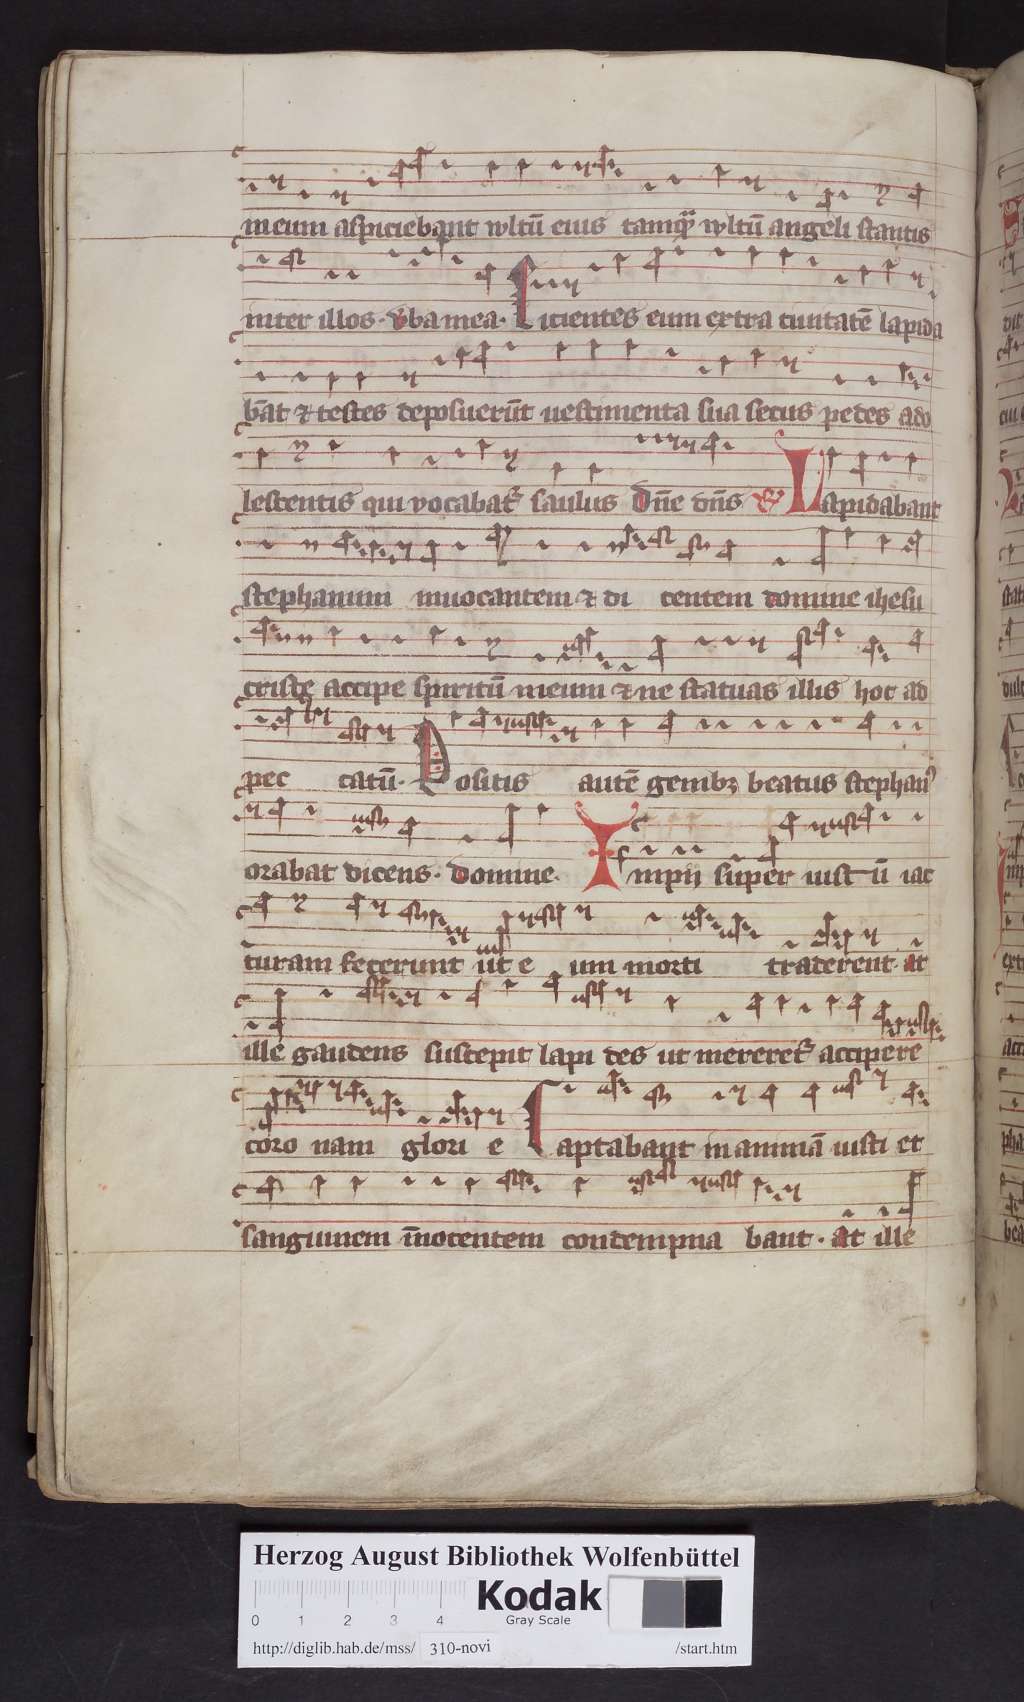 meum aspiciebant wltū eius tamq̄ wltū angeli stantis
inter illos. v̄ba mea. Eicientes eum extra ciuitatē lapida
bāt & testes deposuerūt uestimenta sua secus pedes ado
lescentis qui vocabat᷑ saulus dn̄e dn̄s Lapidabant
stephanum inuocantem & di centem domine ihesu
criste accipe spiritū meum & ne statuas illis hoc ad
pec catū. Positis autē genibꝫ beatus stephan᷒
orabat dicens. domine. Impij super iust ū iac
turam fecerunt ut e um morti traderent. at
ille gaudens suscepit lapi des ut mereret᷑ accipere
coro nam glori e Captabant in animā iusti et
sanguinem īnocentem condempna bant. at ille
Herzog August Bibliothek Wolfenbüttel
Kodak
Gray Scale
0 1 2 3 4
http://diglib.hab.de/mss/ 310-novi /start.htm